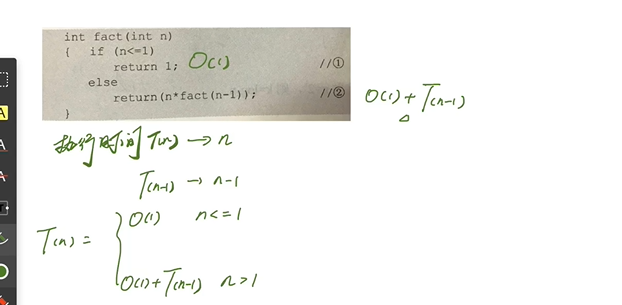 int fact(int n)
{ if (n<=1)
return 1; O(1) //①
else
return(n*fact(n-1)); //② O(1)+T(n-1)
}
执行时间T(n) → n
T(n-1) → n-1
T(n) = { O(1) n<=1
O(1)+T(n-1) n>1